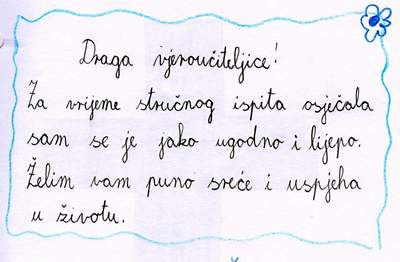 Draga vjeroučiteljice!
Za vrijeme stručnog ispita osjećala
sam se je jako ugodno i lijepo.
Želim vam puno sreće i uspjeha
u životu.